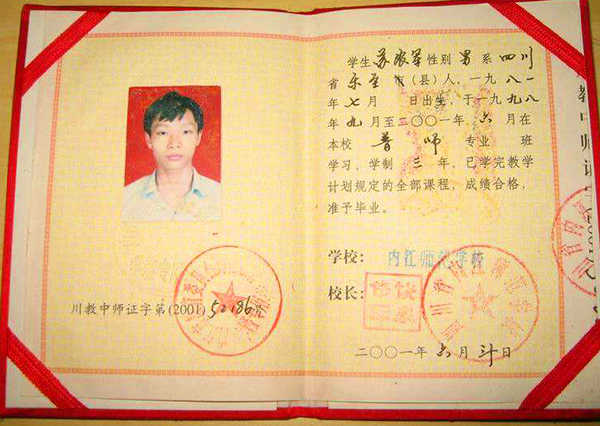 学生苏 军性别男系四川
省乐至市(县)人,一九八一
年七月 日出生,于一九九八
年九月至二〇〇一年六月在
本校普师专业 班
学习,学制三年,已学完教学
计划规定的全部课程,成绩合格,
准予毕业。
学校:内江师范学校
校长:
二〇〇一年六月 日
川教中师证字第(2001)52186号